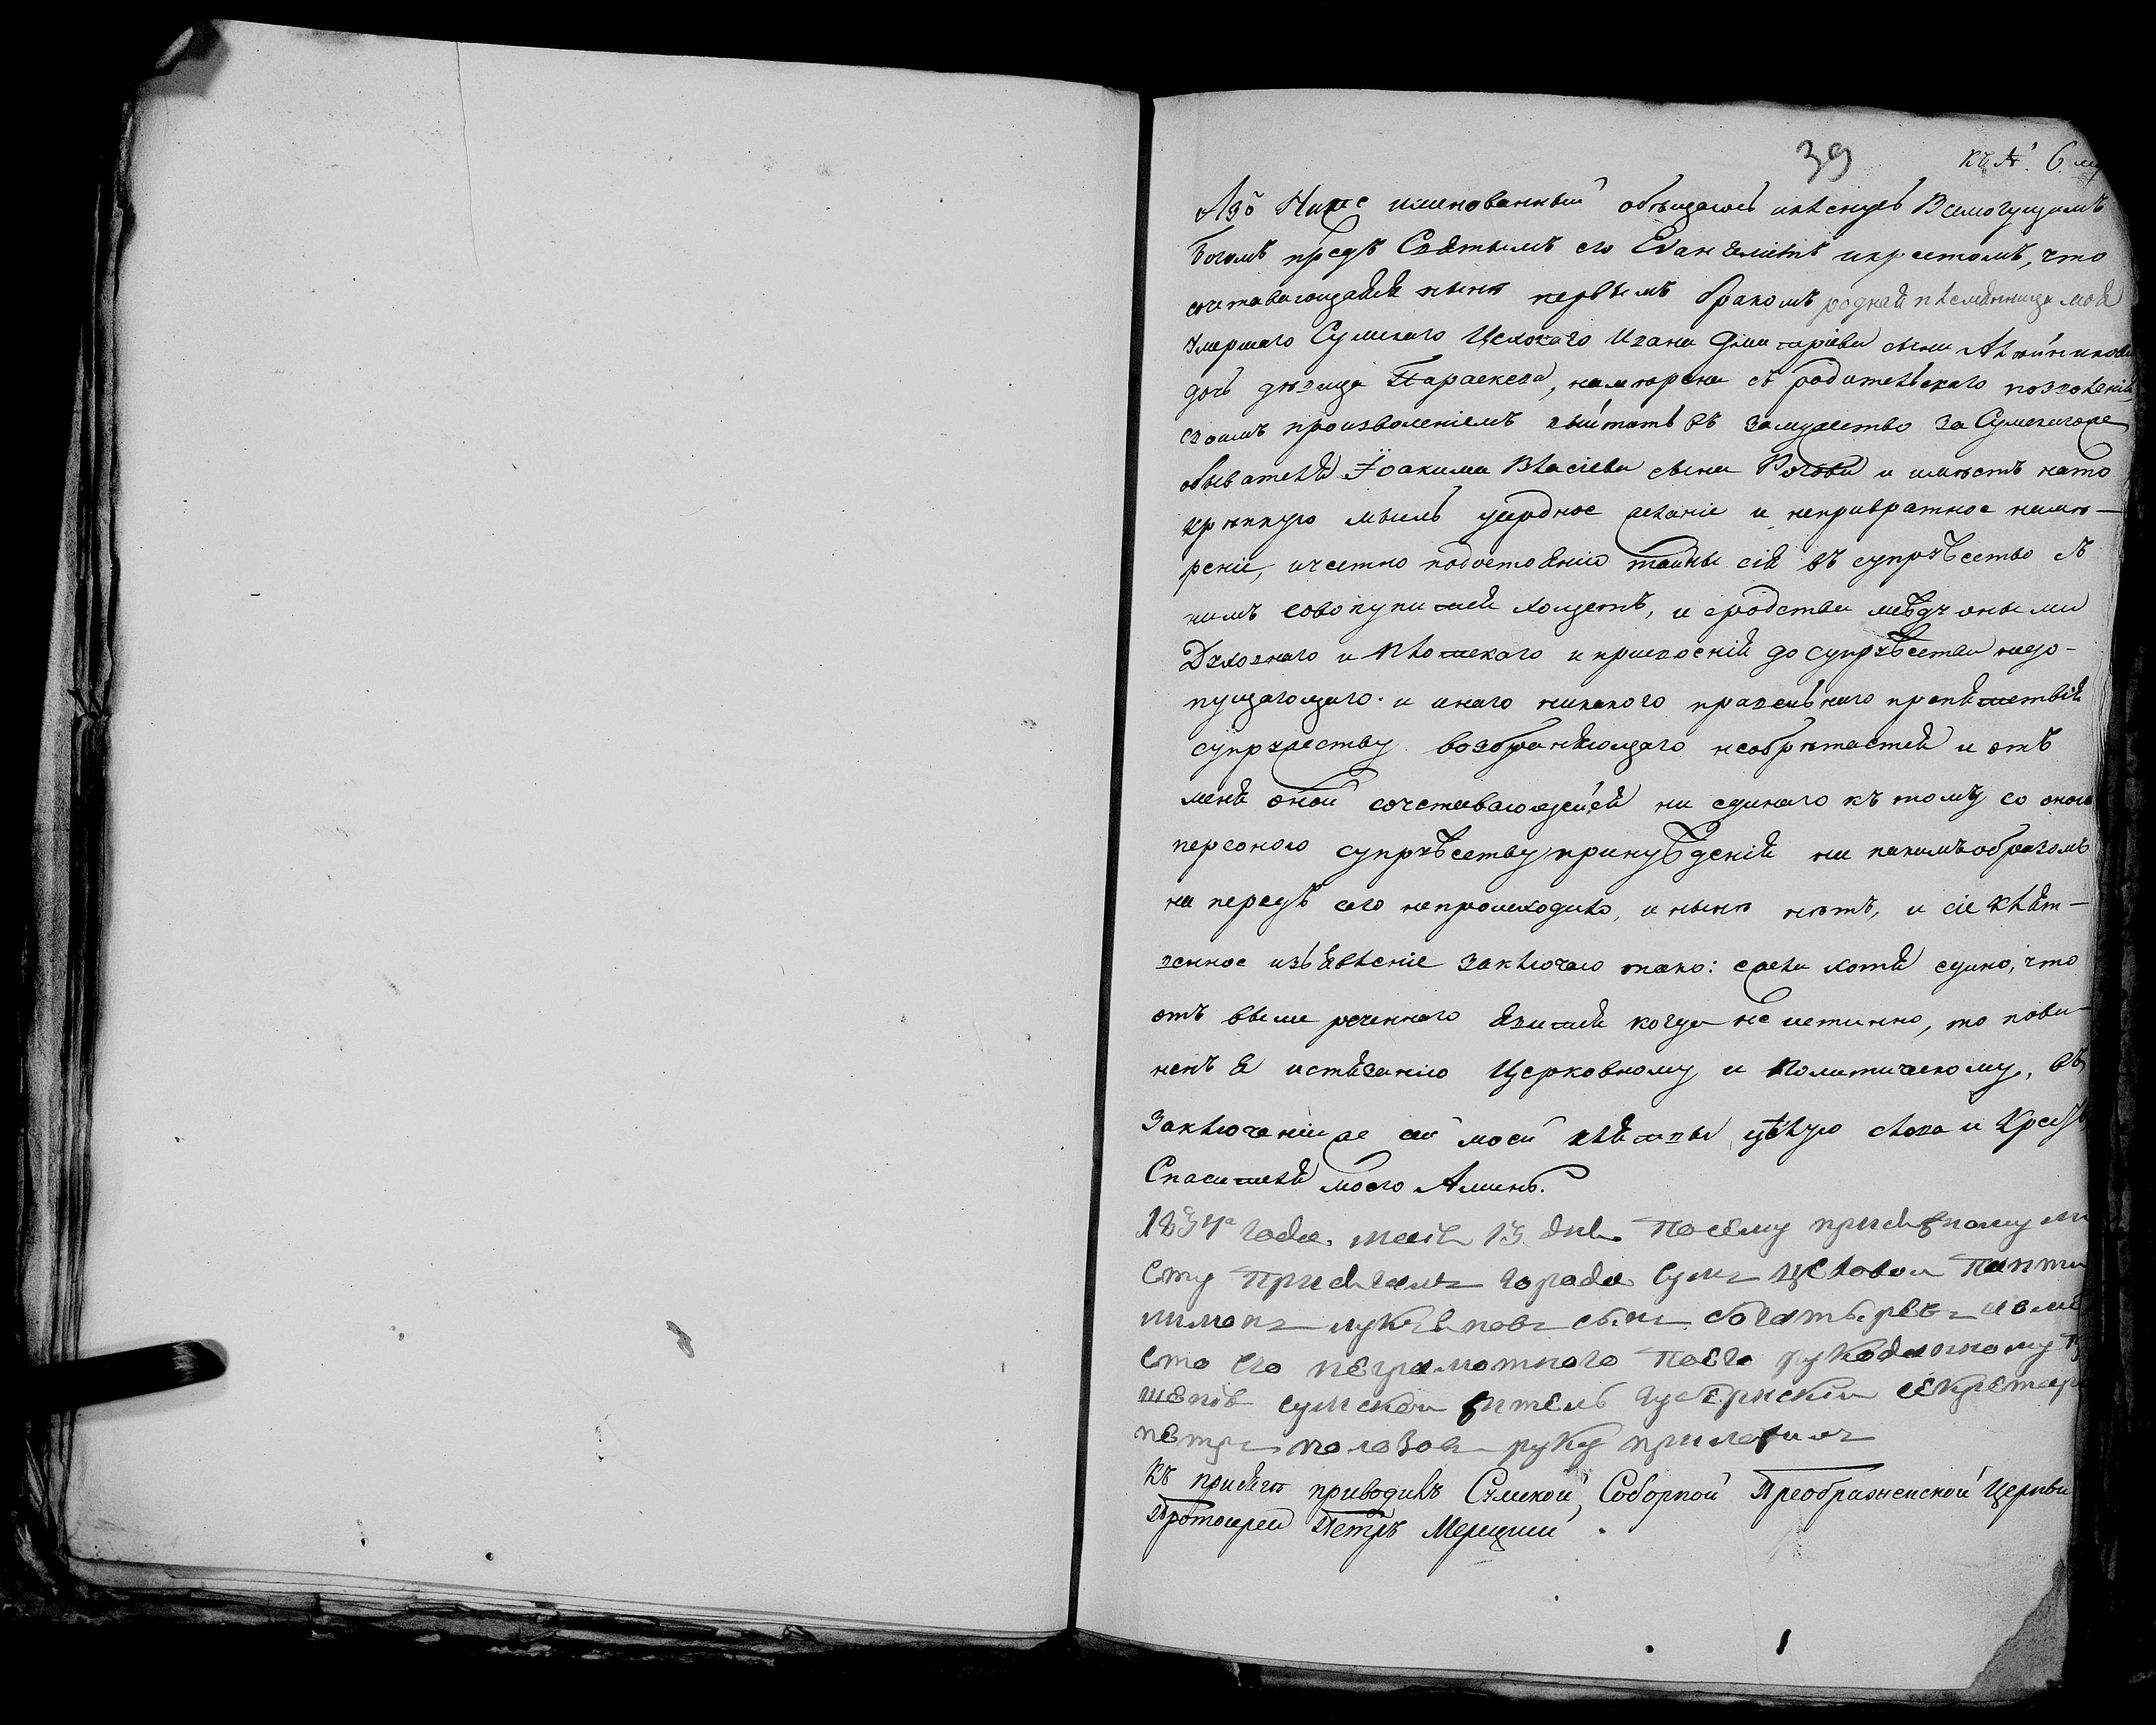 39 къ №. 6. му
Азъ Ниже именованный обѣщаюсь и клянусь Всемогущимъ
Богомъ предъ Святымъ его Евангелiемъ и крестомъ, что
сочетавающаяся нынѣ первымъ бракомъ родная племянница моя
умершаго Сумскаго Цеховаго Ивана Дмитрiева сына
дочь дѣвица Параскева, намѣрена съ родительскаго позволенiя,
своимъ произволенiемъ выйтить въ замужество за Сумскаго
обывателя Iоакима Власiева сына Рогова и имѣетъ на то
крѣпкую мысль усердное желанiе и непривратное намѣ-
ренiе, и честно по достоянiю тайны сiя въ супружество съ
нимъ совокупится хощетъ, и сродства между оными
Духовнаго и Плотскаго и присвоенiй до супружества недо-
пущающаго и инаго никакого правильнаго препятствiя
супружеству возбраняющаго необрѣтается и отъ
меня оной сочетавающейся ни единаго къ тому со оною
персоною супружеству принужденiя ни какимъ образомъ
на передъ сего непроисходило, и нынѣ нѣтъ, и сiе клят-
венное изъявленiе заключаю тако: ежели хотя едино, что
отъ выше реченнаго явится когда не истинно, то пови-
ненъ я истязанiю Церковному и Политическому, въ
Заключенiи же сей моей клятвы цѣлую слова и Крестъ
Спасителя моего Аминь.
1834 года. маiя 13 дня. по сему присяжному ли
сту присягалъ города Сумъ цеховои Панте
лимонъ лукяновъ сынъ богатыревъ а вмѣ
сто его неграмотного по его рукоданному про
шенiю сумскои житель губернскiи секретарь
петръ полозов руку приложилъ
Къ присягѣ приводилъ Сумской Соборной Преображенской Церкви
Протоиерей Петръ